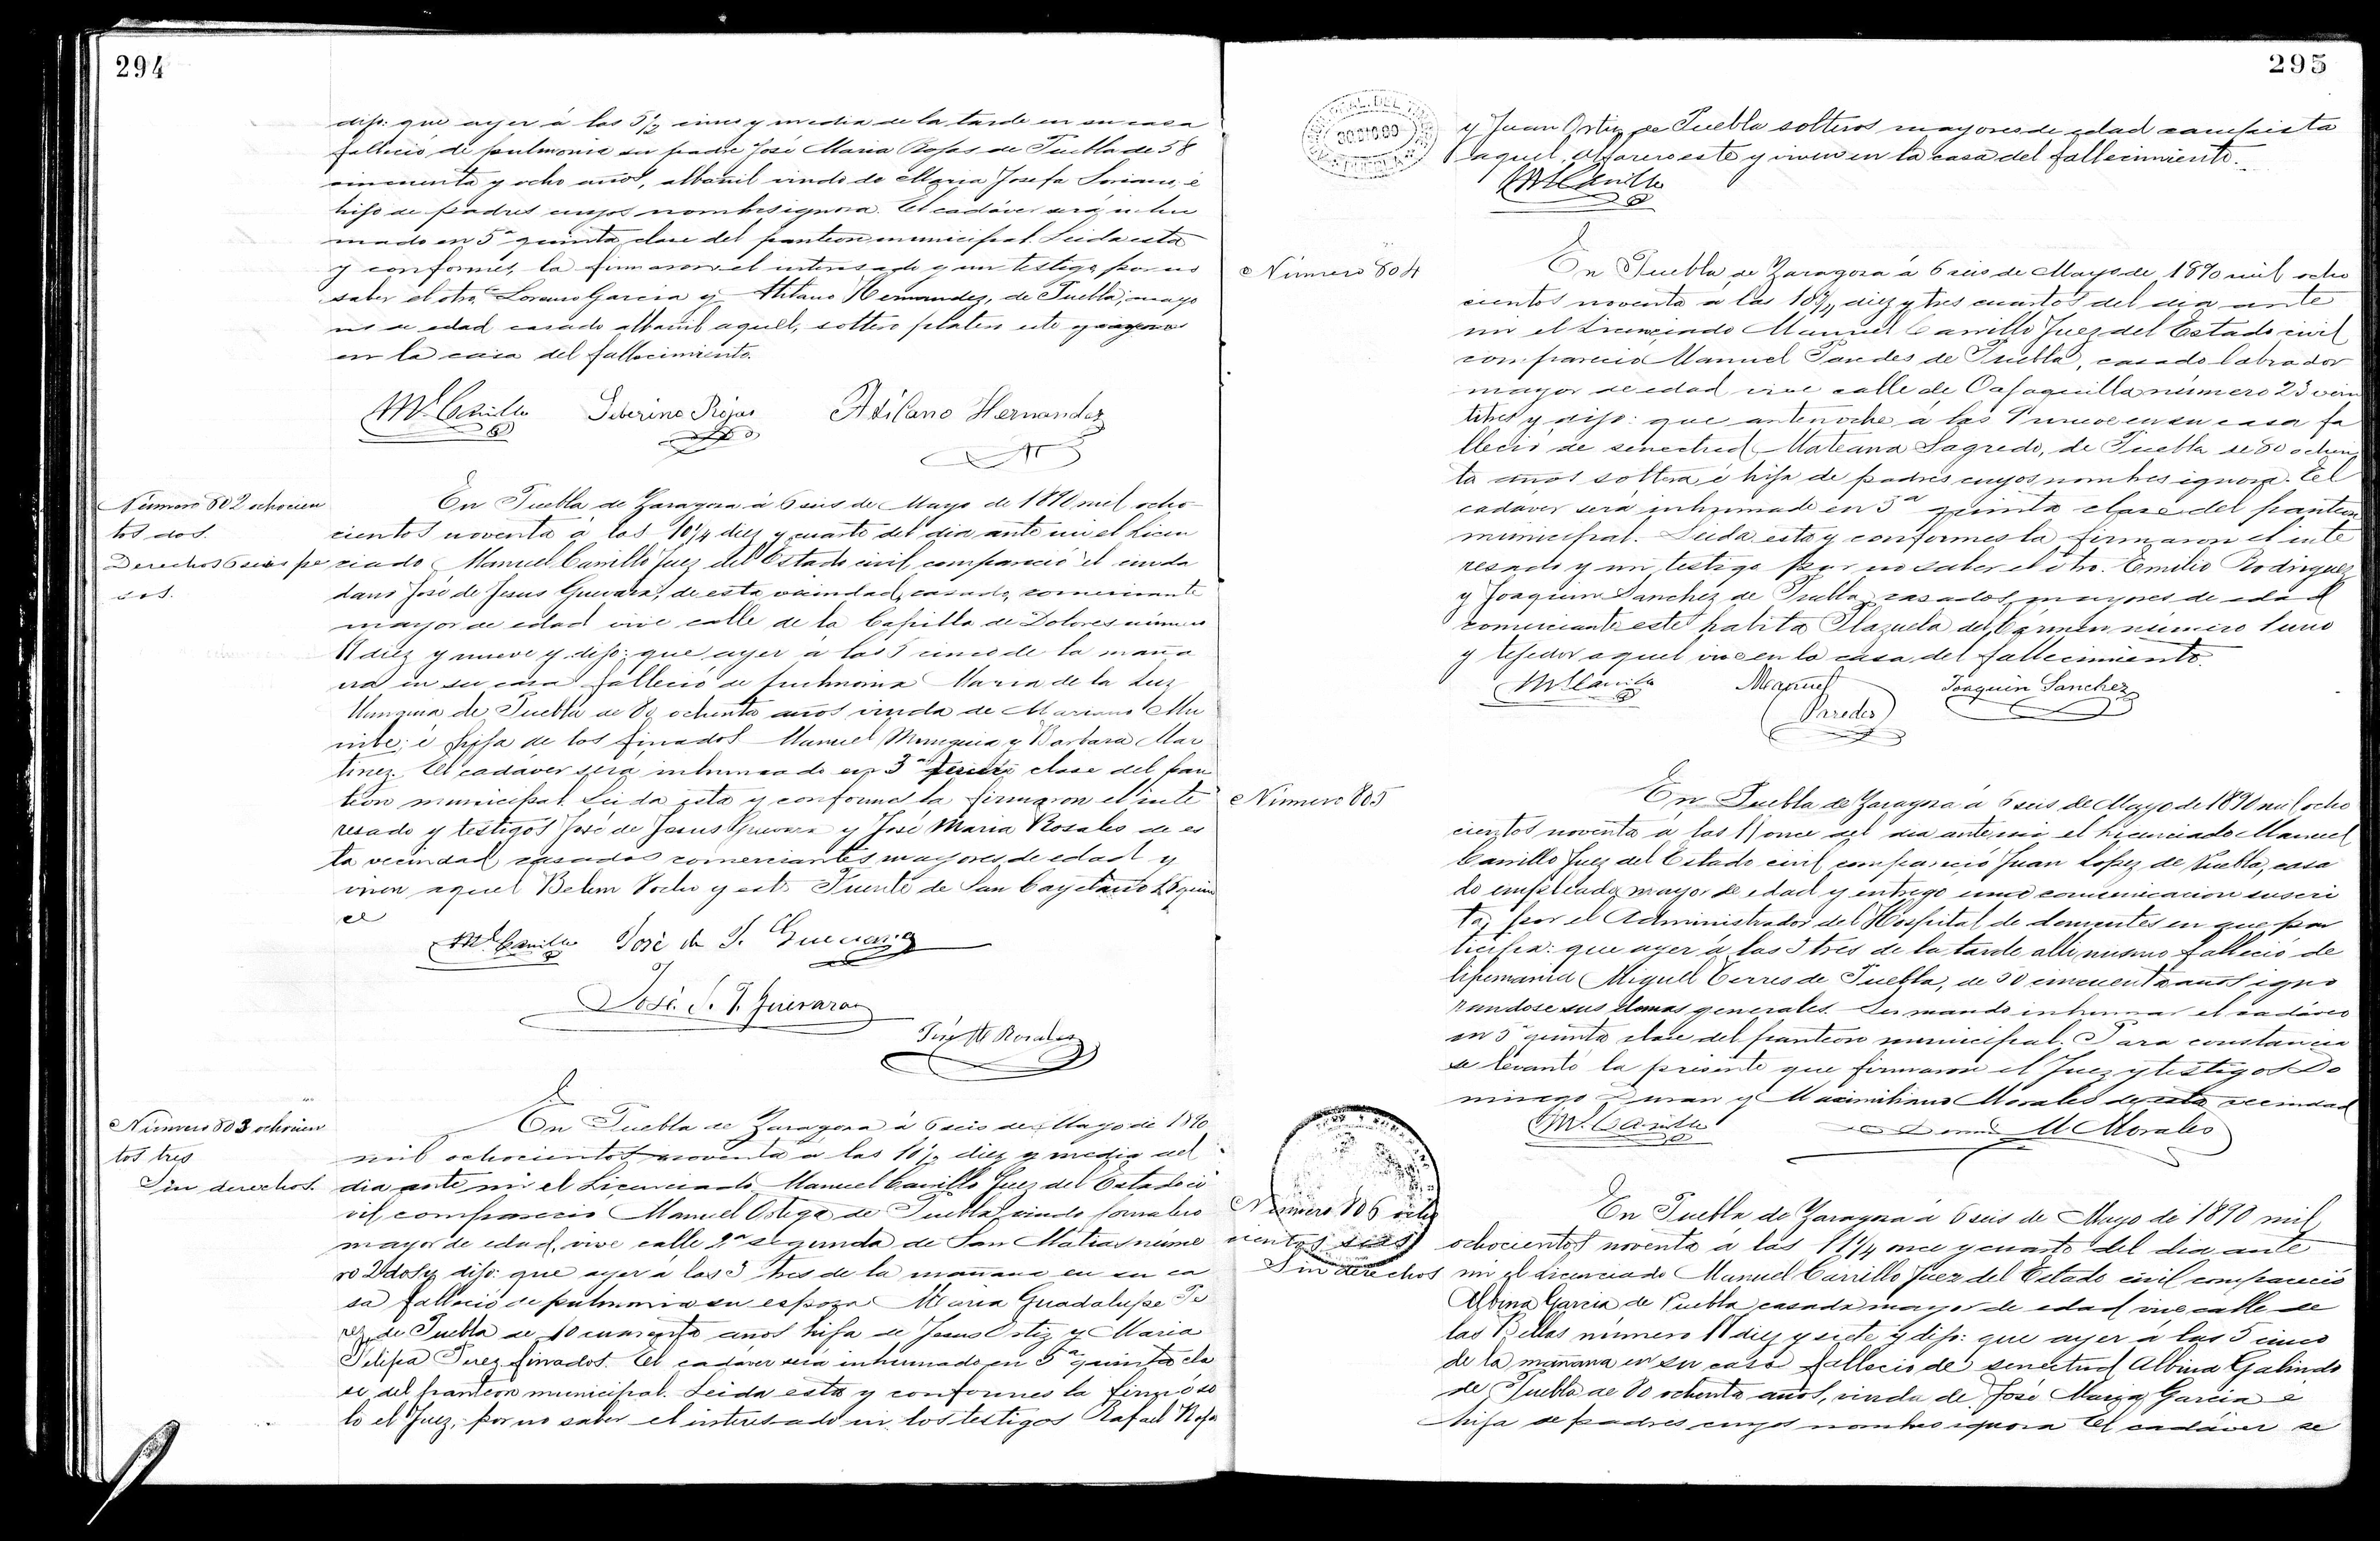 294
dijo: que ayer á las 5½ cinco y media de la tarde en su casa
falleció de pulmonia su padre José Maria Rojas de Puebla de 58
cincuenta y ocho años, albañil viudo de Maria Josefa Soriano, é
hijo de padres cuyos nombres ignora. El cadáver será inhu
mado en 5ª quinta clase del panteon municipal. Leida esta
y conformes, la firmaron el interesado y un testigo por no
saber el otro. Lorenzo Garcia y Atilano Hernandez, de Puebla, mayo
res de edad casado albañil aquel, soltero platero este y
en la casa del fallecimiento.
M. Carrillo Seberino Rojas Atilano Hernandez
Número 802 ochocien
tos dos.
Derechos 6 seis pe
sos.
En Puebla de Zaragoza á 6 seis de Mayo de 1890 mil ocho
cientos noventa á las 10¼ diez y cuarto del dia ante mi el Licen
ciado Manuel Carrillo Juez del Estado civil compareció el ciuda
dano José de Jesus Guevara, de esta vecindad, casado, comerciante
mayor de edad vive calle de la Capilla de Dolores número
diez y nueve y dijo: que ayer á las 5 cinco de la maña
na en su casa falleció de pulmonia Maria de la Luz
Munguia de Puebla de 80 ochenta años viuda de Mariano
é hija de los finados Manuel Munguia y Barbara Mar
tinez. El cadáver será inhumado en 3ª tercera clase del pan
teon municipal. Leida esta y conformes la firmaron el inte
resado y testigos José de Jesus Guevara y José Maria Rosales de es
ta vecindad casados comerciantes mayores de edad y
viven aquel Belem 8 ocho y este Puente de San Cayetano 15 quin
ce
M. Carrillo José de J. Guevara
José. S. J. Guevara
José M Rosales
Número 803 ochocien
tos tres
Sin derechos.
En Puebla de Zaragoza á 6 seis de Mayo de 1890
mil ochocientos noventa á las 10½ diez y media del
dia ante mi el Licenciado Manuel Carrillo Juez del Estado ci
vil compareció Manuel Ortega de Puebla, viudo jornalero
mayor de edad, vive calle 2ª segunda de San Matias núme
ro 2 dos y dijo: que ayer á las 3 tres de la mañana en su ca
sa falleció de pulmonia su esposa Maria Guadalupe Pe
rez de Puebla de 40 cuarenta años hija de Jesus Ortiz y Maria
Felipa Perez finados. El cadáver será inhumado en 5ª quinta cla
se del panteon municipal. Leida esta y conformes la firmó so
lo el Juez, por no saber el interesado ni los testigos Rafael Rojas
295
y Juan Ortiz de Puebla solteros mayores de edad campista
aquel. alfarero este y viven en la casa del fallecimiento.
M. Carrillo
Número 804
En Puebla de Zaragoza á 6 seis de Mayo de 1890 mil ocho
cientos noventa á las 10¾ diez y tres cuartos del dia ante
mi el Licenciado Manuel Carrillo Juez del Estado civil
compareció Manuel Paredes de Puebla, casado labrador
mayor de edad vive calle de número 23 vein
titres y dijo: que antenoche á las 9 nueve en su casa fa
lleció de senectud Mateana Sagredo, de Puebla de 80 ochen
ta años soltera é hija de padres cuyos nombres ignora. El
cadáver será inhumado en 5ª quinta clase del panteon
municipal. Leida esta y conformes la firmaron el inte
resado y un testigo por no saber el otro. Emilio Rodriguez
y Joaquin Sanchez de Puebla casados, mayores de edad
comerciante este habita Plazuela del Cármen número 1 uno
y tejedor aquel vive en la casa del fallecimiento.
M. Carrillo Manuel Paredes Joaquin Sanchez
Número 805
En Puebla de Zaragoza á 6 seis de Mayo de 1890 mil ocho
cientos noventa á las 11 once del dia ante mi el Licenciado Manuel
Carrillo Juez del Estado civil compareció Juan Lopez de Puebla, casa
do empleado mayor de edad y entregó una comunicacion suscri
ta por el Administrador del Hospital de dementes en que par
ticipa: que ayer á las 3 tres de la tarde alli mismo falleció de
lipemania Miguel Torres de Puebla, de 50 cincuenta años igno
randose sus demas generales. Se mandó inhumar el cadáver
en 5ª quinta clase del panteon municipal. Para constancia
se levantó la presente que firmaron el Juez y testigos Do
mingo Duran y Maximiliano Morales de esta vecindad
M. Carrillo M Morales
Número 806 ocho
cientos seis
Sin derechos
En Puebla de Zaragoza á 6 seis de Mayo de 1890 mil
ochocientos noventa á las 11¼ once y cuarto del dia ante
mi el Licenciado Manuel Carrillo Juez del Estado civil compareció
Albina Garcia de Puebla casada mayor de edad vive calle de
las Bellas número 17 diez y siete y dijo: que ayer á las 5 cinco
de la mañana en su casa falleció de senectud Albina Galindo
de Puebla de 80 ochenta años, viuda de José Maria Garcia é
hija de padres cuyos nombres ignora El cadáver se